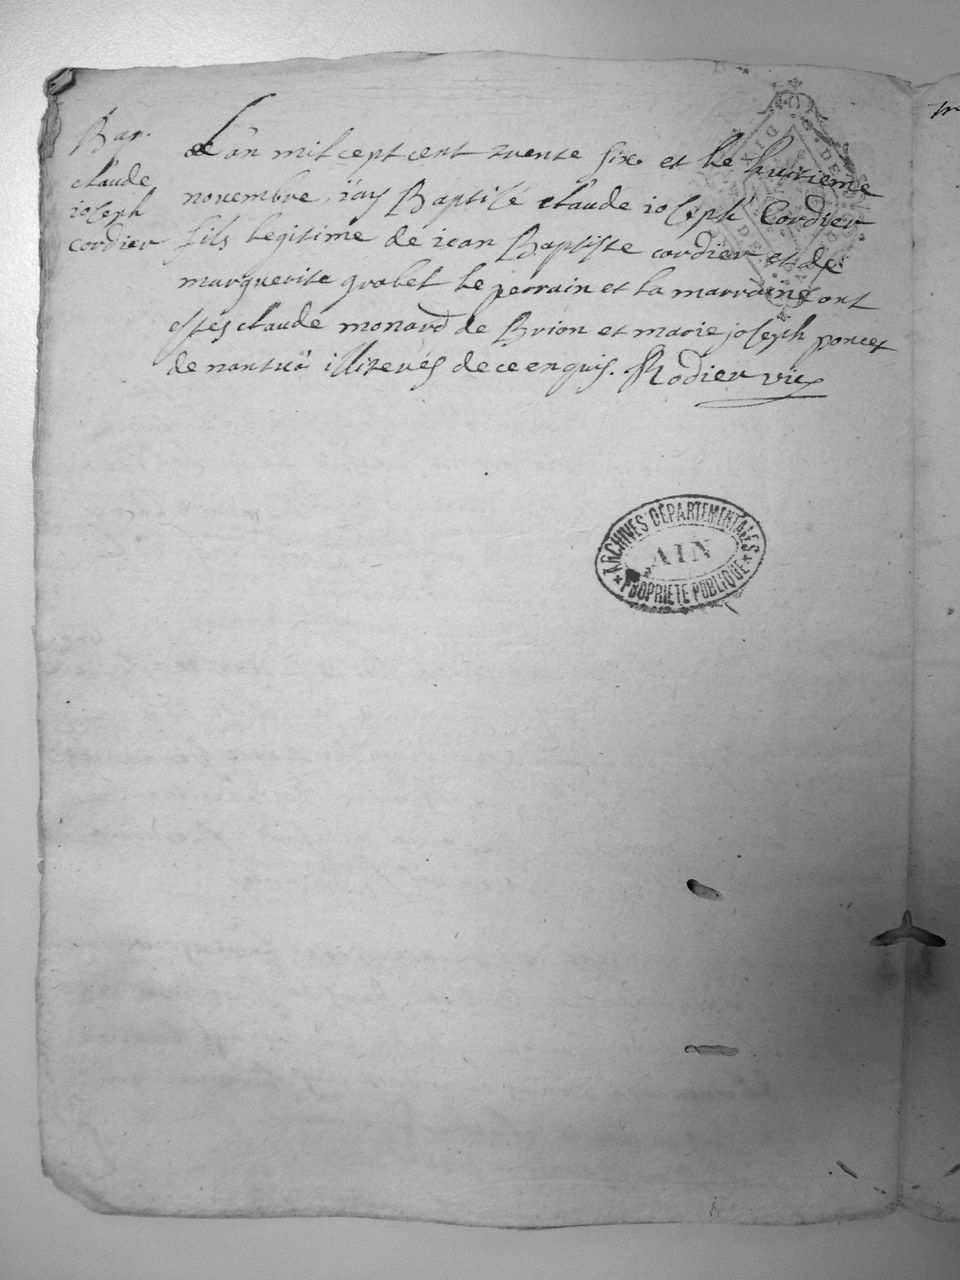 Bap.
claude
ioseph
cordier
L'an mil cept cent trente six et le huitieme
novembre, i'ay Baptisé claude ioseph Cordier
fils legitime de iean Baptiste cordier et de
marguerite grobet le perrain et la marraine ont
estés claude monard de Brion et marie joseph poncet
de nantua illiterés de ce enquis. Rodier vic
ARCHIVES DÉPARTEMENTALES
AIN
PROPRIÉTÉ PUBLIQUE